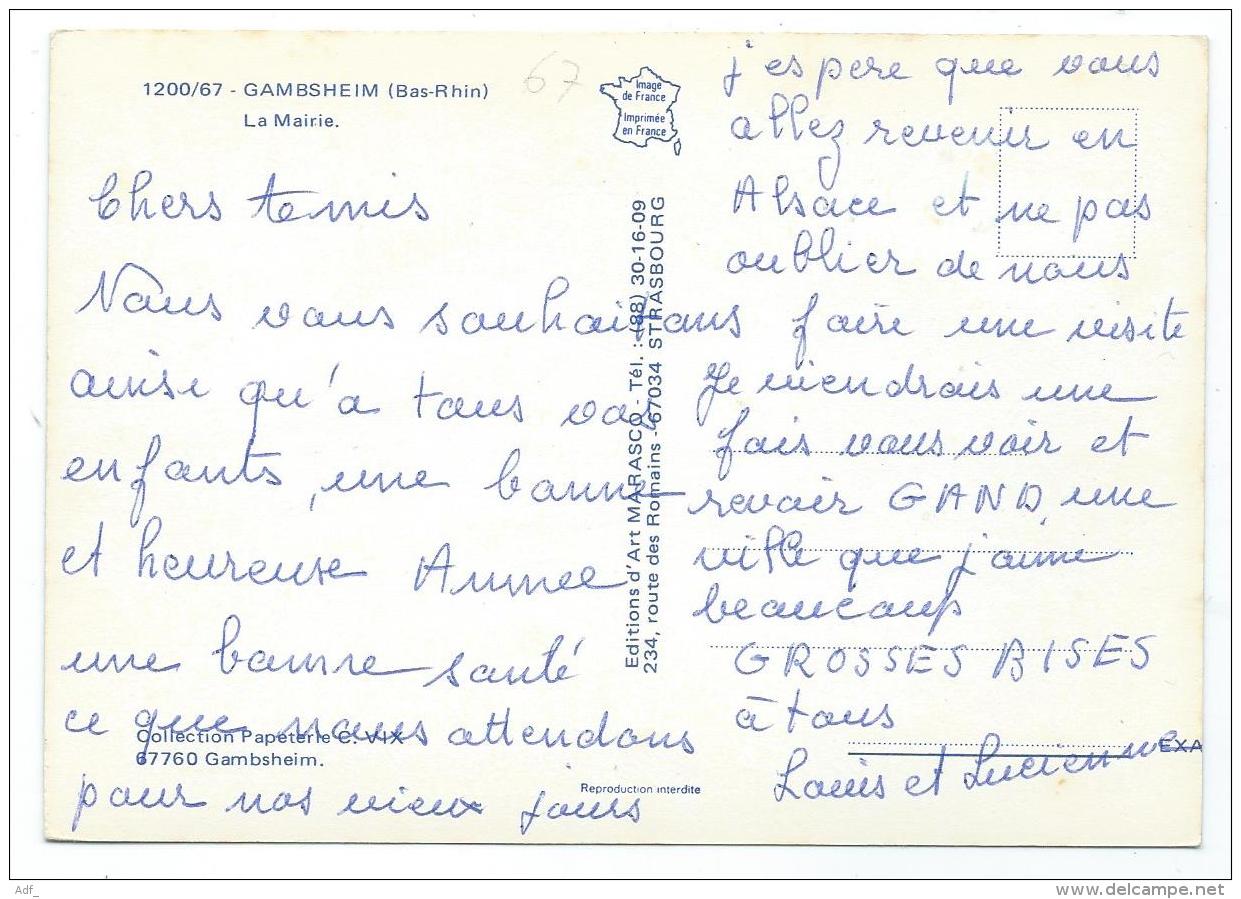 1200/67 - GAMBSHEIM (Bas-Rhin)
La Mairie.
67
Image
de France
Imprimée
en France
Chers
Nous vous souhaitons
ainsi qu'a tous vos
enfants, une bonne
et heureuse Annee
une bonne santé
ce que nous attendons
pour nos vieux jours
j'espere que vous
allez revenir en
Alsace et ne pas
oublier de nous
faire une visite
Je viendrais une
fois vous voir et
revoir GAND, une
ville que j'aime
beaucoup
GROSSES BISES
à tous
Louis et Lucienne
Editions d'Art MARASCO - Tél. : (88) 30-16-09
234, route des Romains - 67034 STRASBOURG
Collection Papeterie C. VIX
67760 Gambsheim.
Reproduction interdite
EXA
Adf_
www.delcampe.net